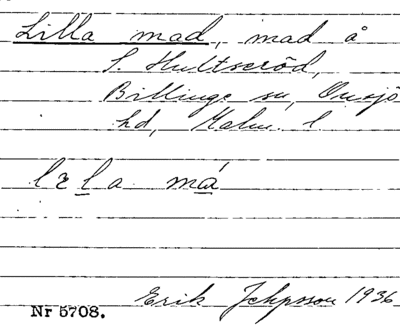 Lilla mad, mad å
S. Hultseröd,
Billinge sn, Onsjö
hd, Malm. l
Erik Jeppsson 1936
Nr 5708.